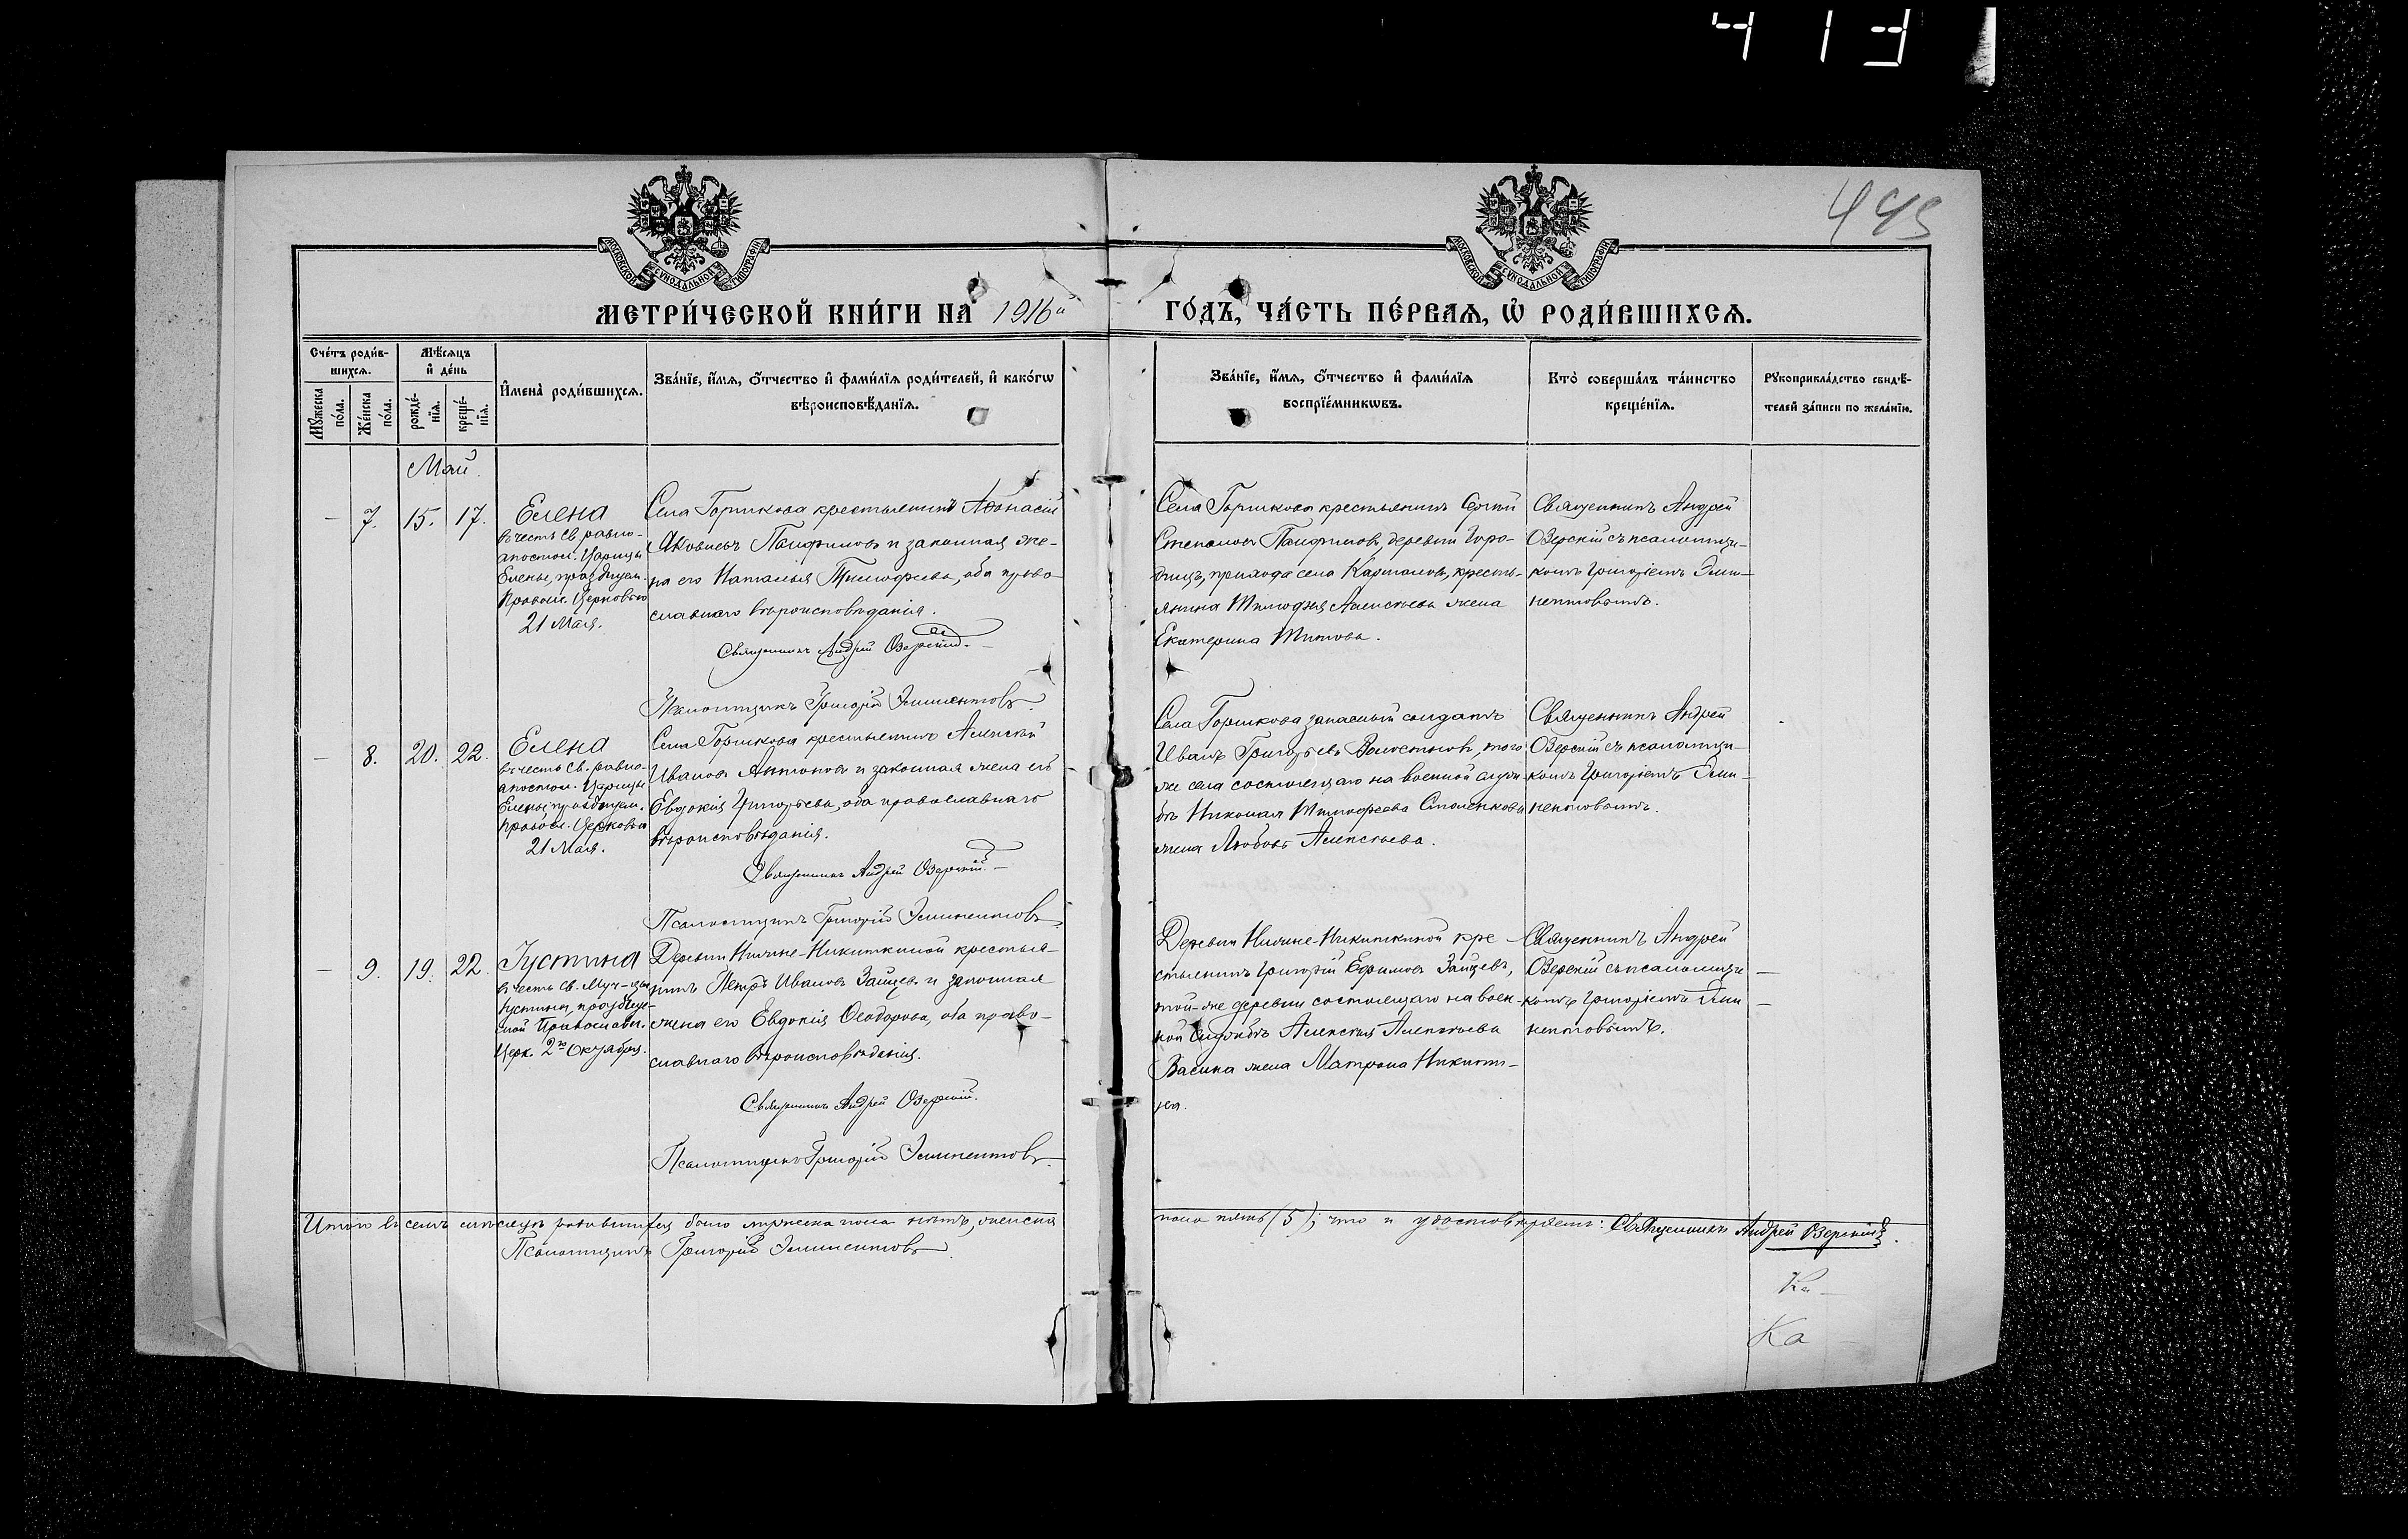 413
445
МОСКОВСКОЙ СѴНОДАЛЬНОЙ ТИПОГРАФІИ
МОСКОВСКОЙ СѴНОДАЛЬНОЙ ТИПОГРАФІИ
МЕТРИ́ЧЕСКОЙ КНИ́ГИ НА 1916й ГО́ДЪ, ЧА́СТЬ ПЕ́РВАЯ, Ѡ҆ РОДИ́ВШИХСЯ.
Сче́тъ роди́в-
шихся.
Мꙋ́жеска по́ла.
Же́нска по́ла.
Мѣ́сяцъ
и҆ де́нь
рожде́-нїя.
креще́-нїя.
И҆мена̀ роди́вшихся.
Зва́нїе, и҆́мя, ѻ҆́тчество и҆ фами́лїя роди́телей, и҆ како́гѡ
вѣроисповѣ́данїя.
Зва́нїе, и҆́мя, ѻ҆́тчество и҆ фами́лїя
воспрїе́мникѡвъ.
Кто̀ соверша́лъ та́инство
креще́нїя.
Рꙋкоприкла́дство свидѣ́-
телей за́писи по жела́нїю.
Май.
— 7. 15. 17.
Елена
въ честь св. равно-
апостол. Царицы
Елены, празднуем.
Правосл. Церковью
21 Мая.
Села Горшкова крестьянинъ Афонасій
Яковлевъ Панфиловъ и законная же-
на его Наталья Тимофеева, оба право-
славнаго вѣроисповѣданія.
Священникъ Андрей Озерскій.
Псаломщикъ Григорій Эминентовъ.
Села Горшкова крестьянинъ Сергѣй
Степановъ Панфиловъ, деревни Горо-
дищъ, прихода села, кресть-
янина Тимофея Алексѣева жена
Екатерина Титова.
Священникъ Андрей
Озерскій съ псаломщи-
комъ Григоріемъ Эми-
нентовымъ.
— 8. 20. 22.
Елена
въ честь св. равно-
апостол. Царицы
Елены, празднуем.
Правосл. Церковью
21 Мая.
Села Горшкова крестьянинъ Алексѣй
Ивановъ Антоновъ и законная жена его
Евдокія Григорьева, оба православнаго
вѣроисповѣданія.
Священникъ Андрей Озерскій.
Псаломщикъ Григорій Эминентовъ.
Села Горшкова запасный солдатъ
Иванъ Григорьевъ, того
же села состоящаго на военной служ-
бѣ Николая Тимофеева жена Любовь Алексѣева.
Священникъ Андрей
Озерскій съ псаломщи-
комъ Григоріемъ Эми-
нентовымъ.
— 9. 19. 22.
Іустина
въ честь св. Муч-цы
Іустины, празднуе-
мой Православн.
Церк. 2го Октября.
Деревни Нижне-Никиткиной крестья-
нинъ Петръ Ивановъ Зайцевъ и законная
жена его Евдокія Ѳеодорова, оба право-
славнаго вѣроисповѣданія.
Священникъ Андрей Озерскій.
Псаломщикъ Григорій Эминентовъ.
Деревни Нижне-Никиткиной кре-
стьянинъ Григорій Ефимовъ Зайцевъ,
той-же деревни состоящаго на воен-
ной службѣ Алексѣя Алексѣева
Васина жена Матрона Никити-
на.
Священникъ Андрей
Озерскій съ псаломщи-
комъ Григоріемъ Эми-
нентовымъ.
Итого въ семъ мѣсяцѣ родившихся было мужеска пола нѣтъ, женска
пола пять (5); что и удостовѣряемъ: Священникъ Андрей Озерскій.
Псаломщикъ Григорій Эминентовъ.
Ка
Ка